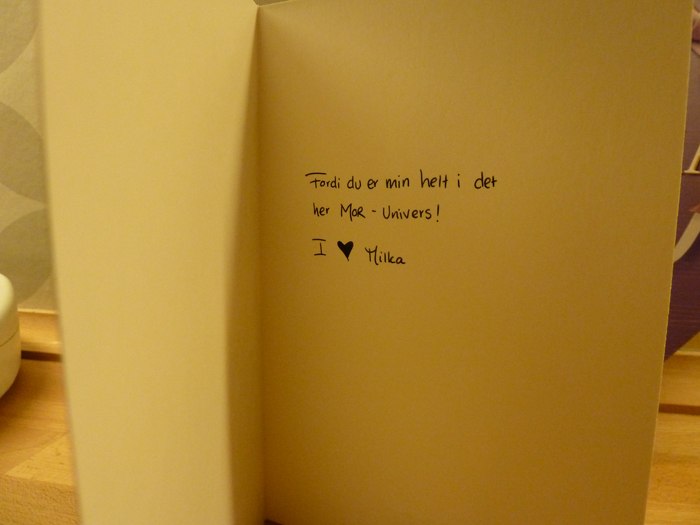 Fordi du er min helt i det
her MOR - Univers!
I ♥ Milka